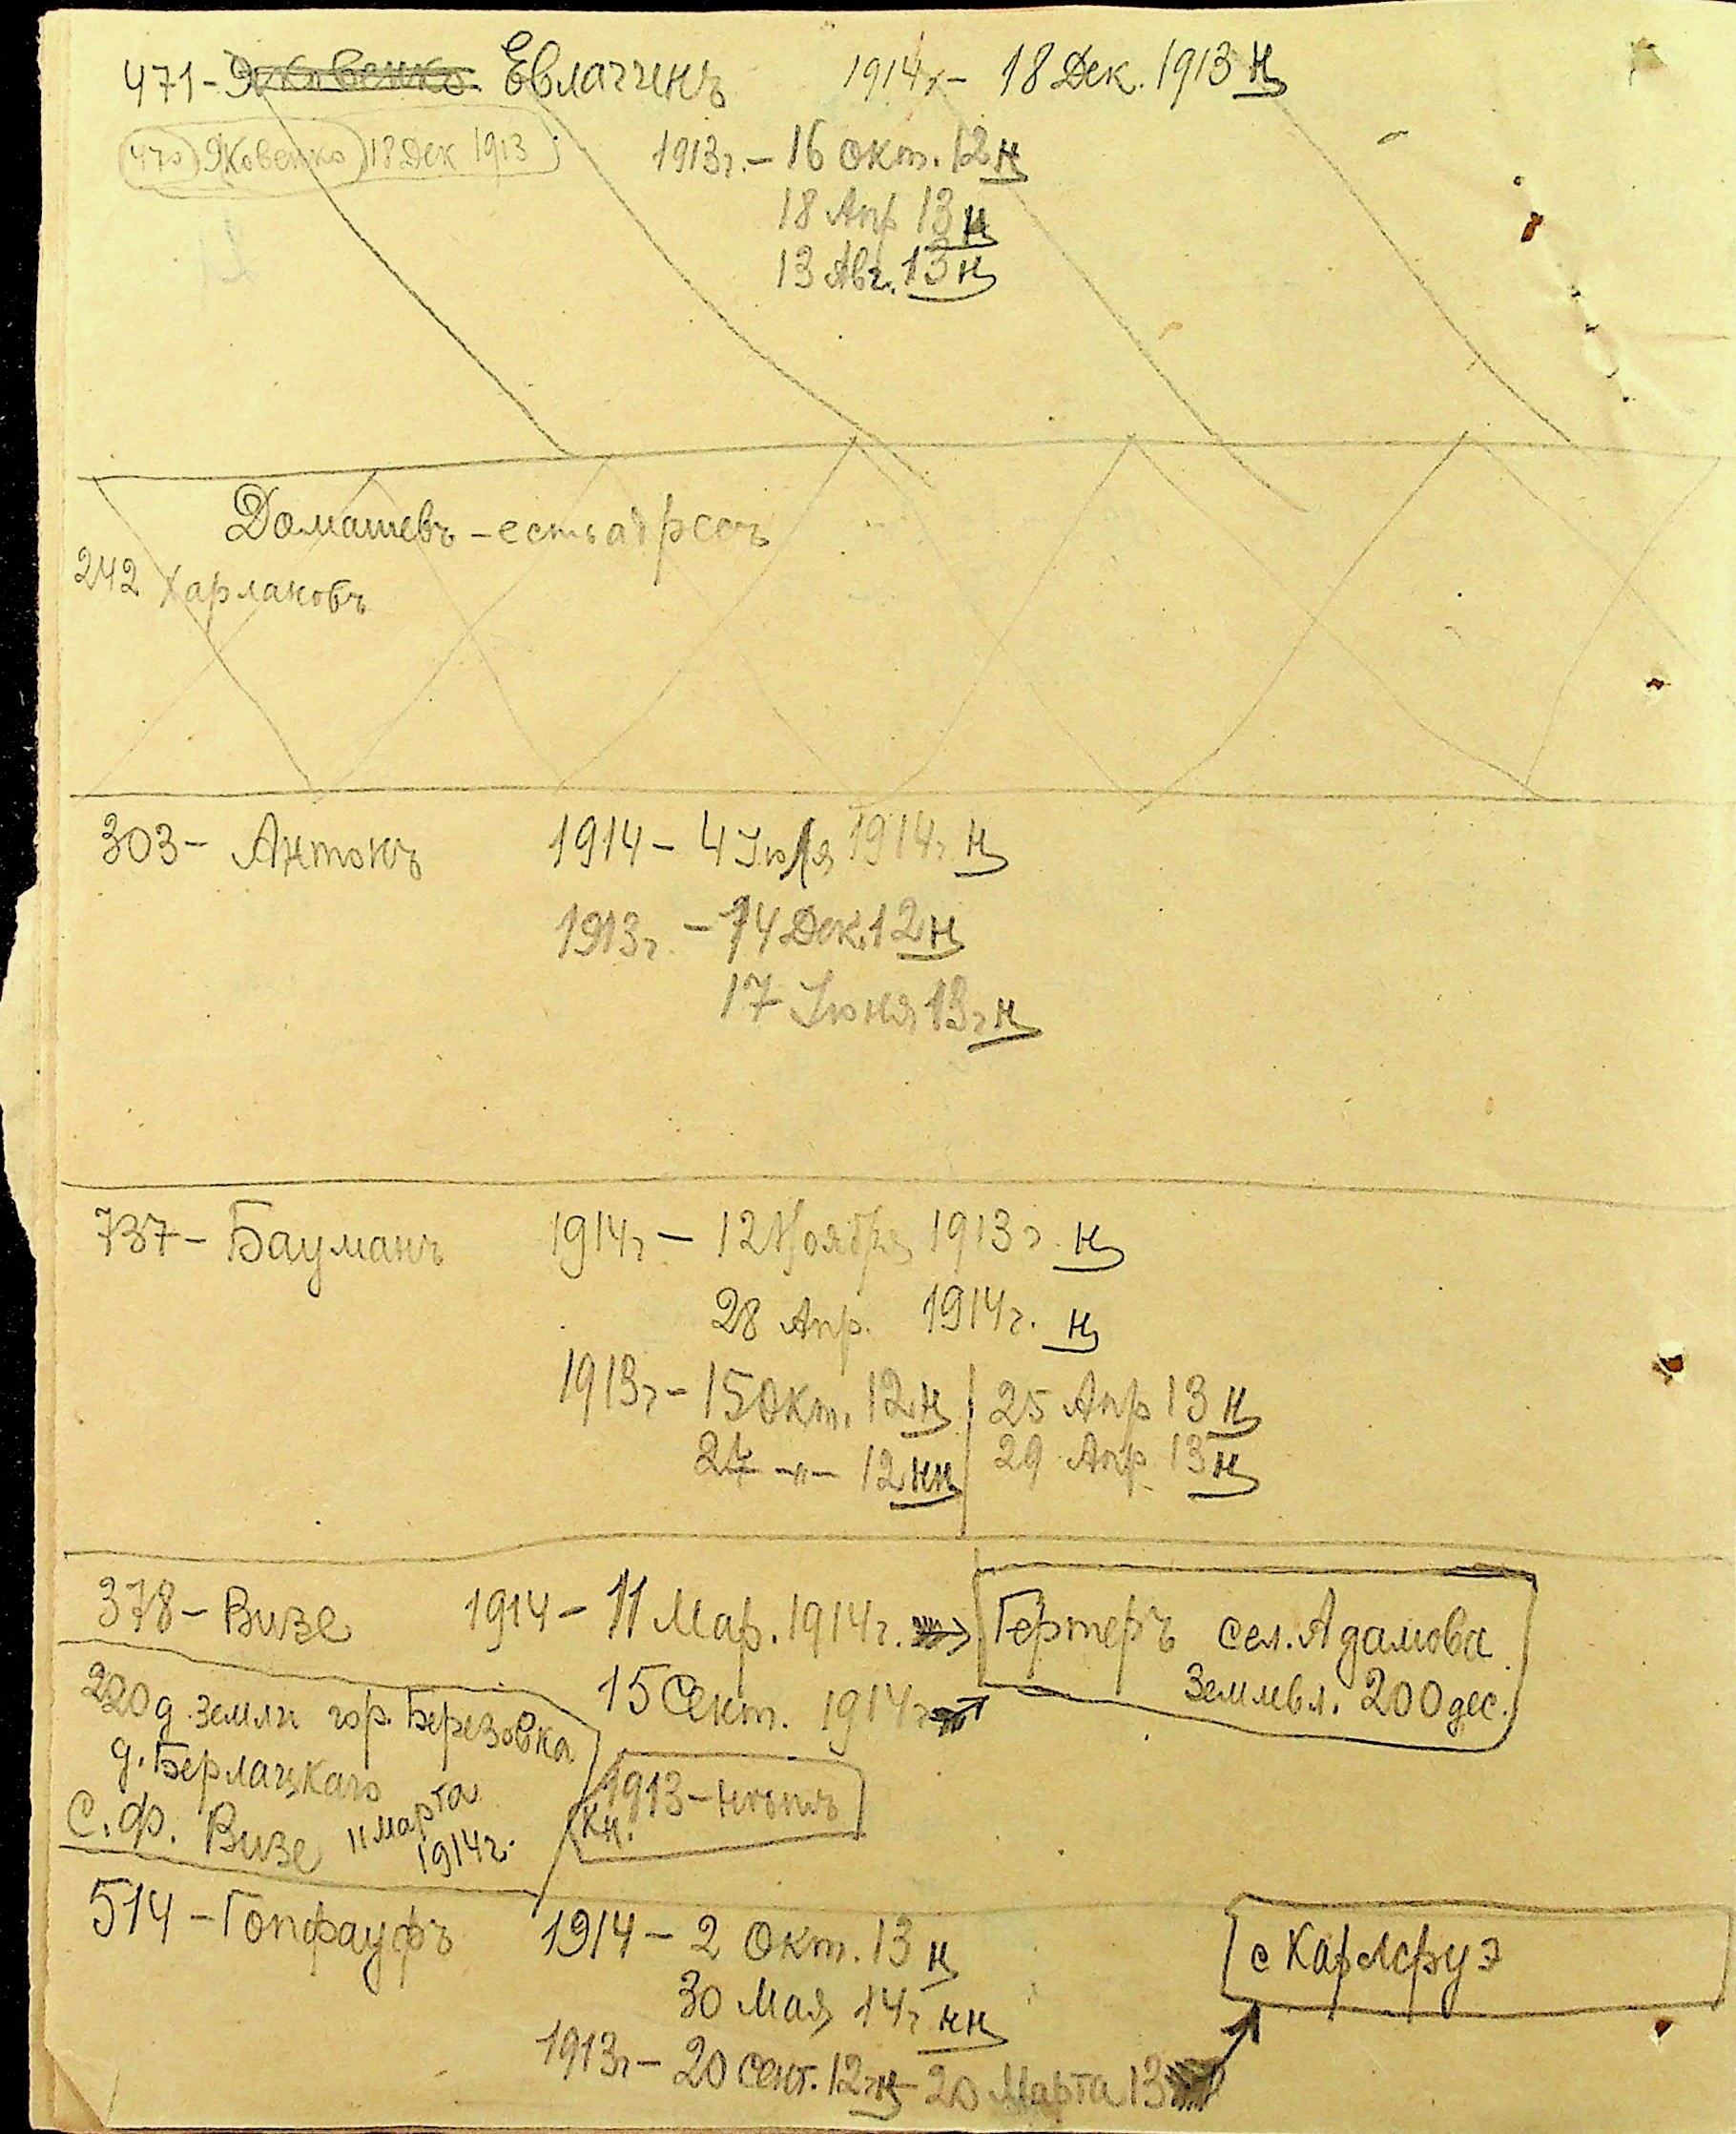 471 - Яковенко Евлаггинъ 1914г - 18 Дек. 1913 н
470 Яковенко 18 Дек 1913
1913г. - 16 окт. 12 н
18 Апр 13 н
13 Авг. 13 н
Домашевъ - есть адресъ
242 Харлановъ
303 - Антонъ 1914 - 4 Iюля 1914г н
1913г - 14 Дек. 12 н
17 Iюня 13г н
737 - Бауманъ 1914г - 12 Ноября 1913г. н
28 Апр. 1914г. н
1913г - 15 Окт. 12 н 25 Апр 13 н
24 -"- 12 нн 29 Апр 13 н
378 - Визе 1914 - 11 Мар. 1914г. Гертеръ сел. Адамова
15 Сент. 1914г Землевл. 200 дес.
220 д. земли гор. Березовка
д. Берлацкаго
С. Ф. Визе 11 марта 1914г.
1913 - нѣтъ
кн.
514 - Гопфауфъ 1914 - 2 Окт. 13 н с Карлсруэ
30 Мая 14г нн
1913г - 20 сент. 12г н - 20 Марта 13